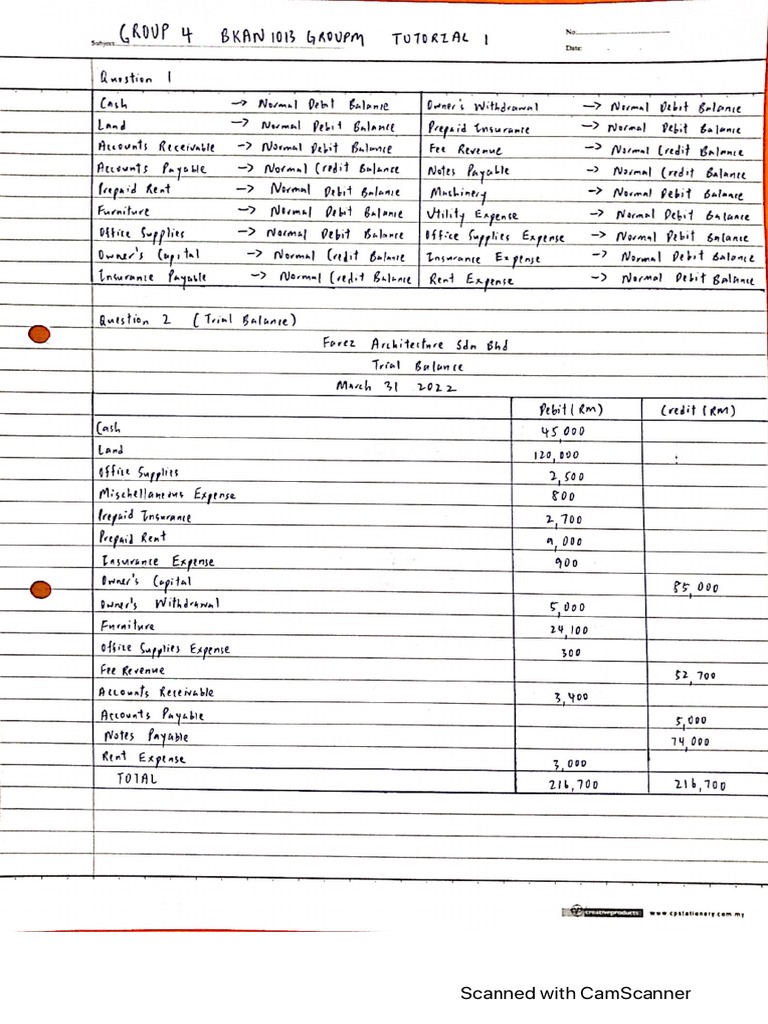 Subject: GROUP 4 BKAN 1013 GROUPM TUTORIAL 1
No:
Date:
Question 1
Cash -> Normal Debit Balance
Land -> Normal Debit Balance
Accounts Receivable -> Normal Debit Balance
Accounts Payable -> Normal Credit Balance
Prepaid Rent -> Normal Debit Balance
Furniture -> Normal Debit Balance
Office Supplies -> Normal Debit Balance
Owner's Capital -> Normal Credit Balance
Insurance Payable -> Normal Credit Balance
Owner's Withdrawal -> Normal Debit Balance
Prepaid Insurance -> Normal Debit Balance
Fee Revenue -> Normal Credit Balance
Notes Payable -> Normal Credit Balance
Machinery -> Normal Debit Balance
Utility Expense -> Normal Debit Balance
Office Supplies Expense -> Normal Debit Balance
Insurance Expense -> Normal Debit Balance
Rent Expense -> Normal Debit Balance
Question 2 (Trial Balance)
Farez Architecture Sdn Bhd
Trial Balance
March 31 2022
Debit (RM) Credit (RM)
Cash 45 000
Land 120,000
Office Supplies 2,500
Mischellaneous Expense 800
Prepaid Insurance 2,700
Prepaid Rent 9,000
Insurance Expense 900
Owner's Capital 85,000
Owner's Withdrawal 5,000
Furniture 24,100
Office Supplies Expense 300
Fee Revenue 52,700
Accounts Receivable 3,400
Accounts Payable 5,000
Notes Payable 74,000
Rent Expense 3,000
TOTAL 216,700 216,700
cp creativeproducts www.cpstationery.com.my
Scanned with CamScanner